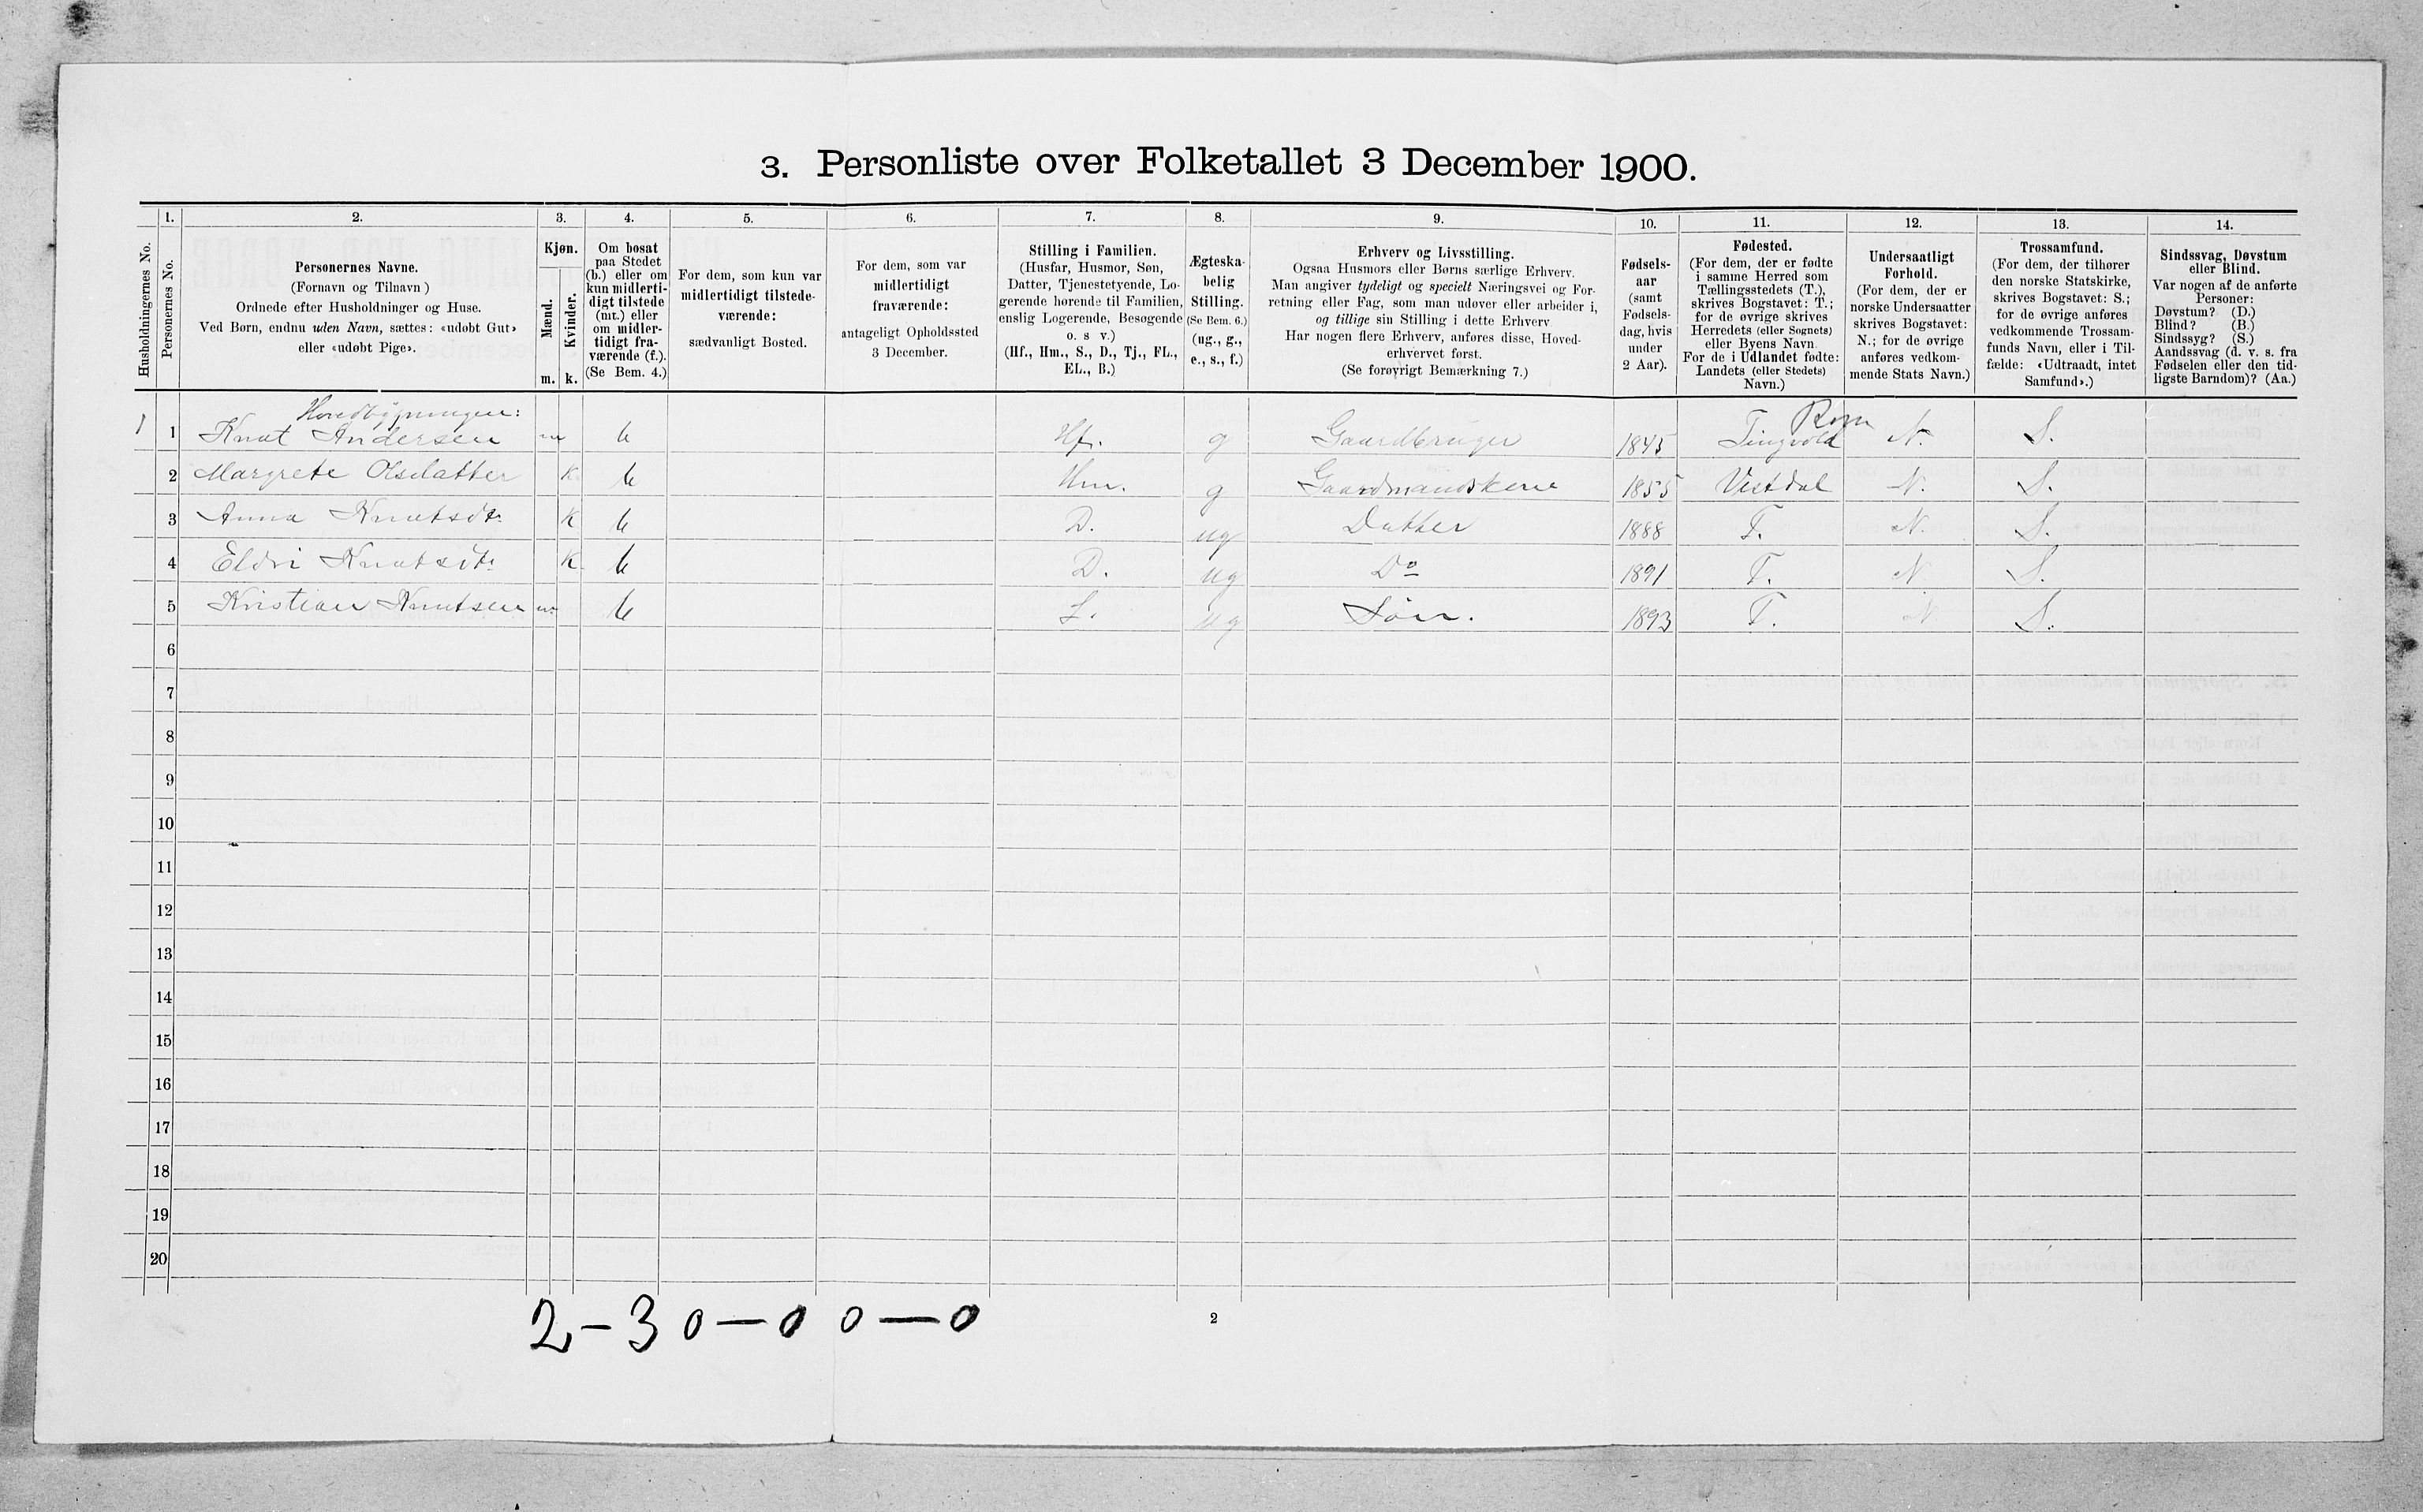 3. Personliste over Folketallet 3 December 1900.
Husholdningernes No.
1.
Personernes No.
2.
Personernes Navne.
(Fornavn og Tilnavn)
Ordnede efter Husholdninger og Huse.
Ved Børn, endnu uden Navn, sættes: «udøbt Gut»
eller «udøbt Pige».
3.
Kjøn.
Mænd.
Kvinder.
m. k.
4.
Om bosat
paa Stedet
(b.) eller om
kun midlerti-
digt tilstede
(mt.) eller
om midler-
tidigt fra-
værende (f.).
(Se Bem. 4.)
5.
For dem, som kun var
midlertidigt tilstede-
værende:
sædvanligt Bosted.
6.
For dem, som var
midlertidigt
fraværende:
antageligt Opholdssted
3 December.
7.
Stilling i Familien.
(Husfar, Husmor, Søn,
Datter, Tjenestetyende, Lo-
gerende hørende til Familien,
enslig Logerende, Besøgende
o. s v.)
(Hf., Hm., S., D., Tj., FL.,
EL., B.)
8.
Ægteska-
belig
Stilling.
(Se Bem. 6.)
(ug., g.,
e., s., f.)
9.
Erhverv og Livsstilling.
Ogsaa Husmors eller Børns særlige Erhverv.
Man angiver tydeligt og specielt Næringsvei og For-
retning eller Fag, som man udøver eller arbeider i,
og tillige sin Stilling i dette Erhverv
Har nogen flere Erhverv, anføres disse, Hoved-
erhvervet først.
(Se forøvrigt Bemærkning 7.)
10.
Fødsels-
aar
(samt
Fødsels-
dag, hvis
under
2 Aar).
11.
Fødested.
(For dem, der er fødte
i samme Herred som
Tællingsstedets (T.),
skrives Bogstavet: T.;
for de øvrige skrives
Herredets (eller Sognets)
eller Byens Navn
For de i Udlandet fødte:
Landets (eller Stedets)
Navn.)
12.
Undersaatligt
Forhold.
(For dem, der er
norske Undersaatter
skrives Bogstavet:
N.; for de øvrige
anføres vedkom-
mende Stats Navn.)
13.
Trossamfund.
(For dem, der tilhører
den norske Statskirke,
skrives Bogstavet: S.;
for de øvrige anføres
vedkommende Trossam-
funds Navn, eller i Til-
fælde: «Udtraadt, intet
Samfund».)
14.
Sindssvag, Døvstum
eller Blind.
Var nogen af de anførte
Personer:
Døvstum? (D.)
Blind? (B.)
Sindssyg? (S.)
Aandssvag (d. v. s. fra
Fødselen eller den tid-
ligste Barndom)? (Aa.)
Hovedbygningen:
1 1 Knut Andersen m b Hf. g Gaardbruger 1845 Tingvold N. S.
2 Margrete Olsdatter k b Hm. g 1855 Vistdal N. S.
3 Anna Knutsdt. k b D. ug Datter 1888 T. N. S.
4 Eldri Knutsdt. k b D. ug Do 1891 T. N S.
5 Kristian Knutsen m b S. ug Søn. 1893 T. N S.
6
7
8
9
10
11
12
13
14
15
16
17
18
19
20
2 – 3 0 – 0 0 – 0
2